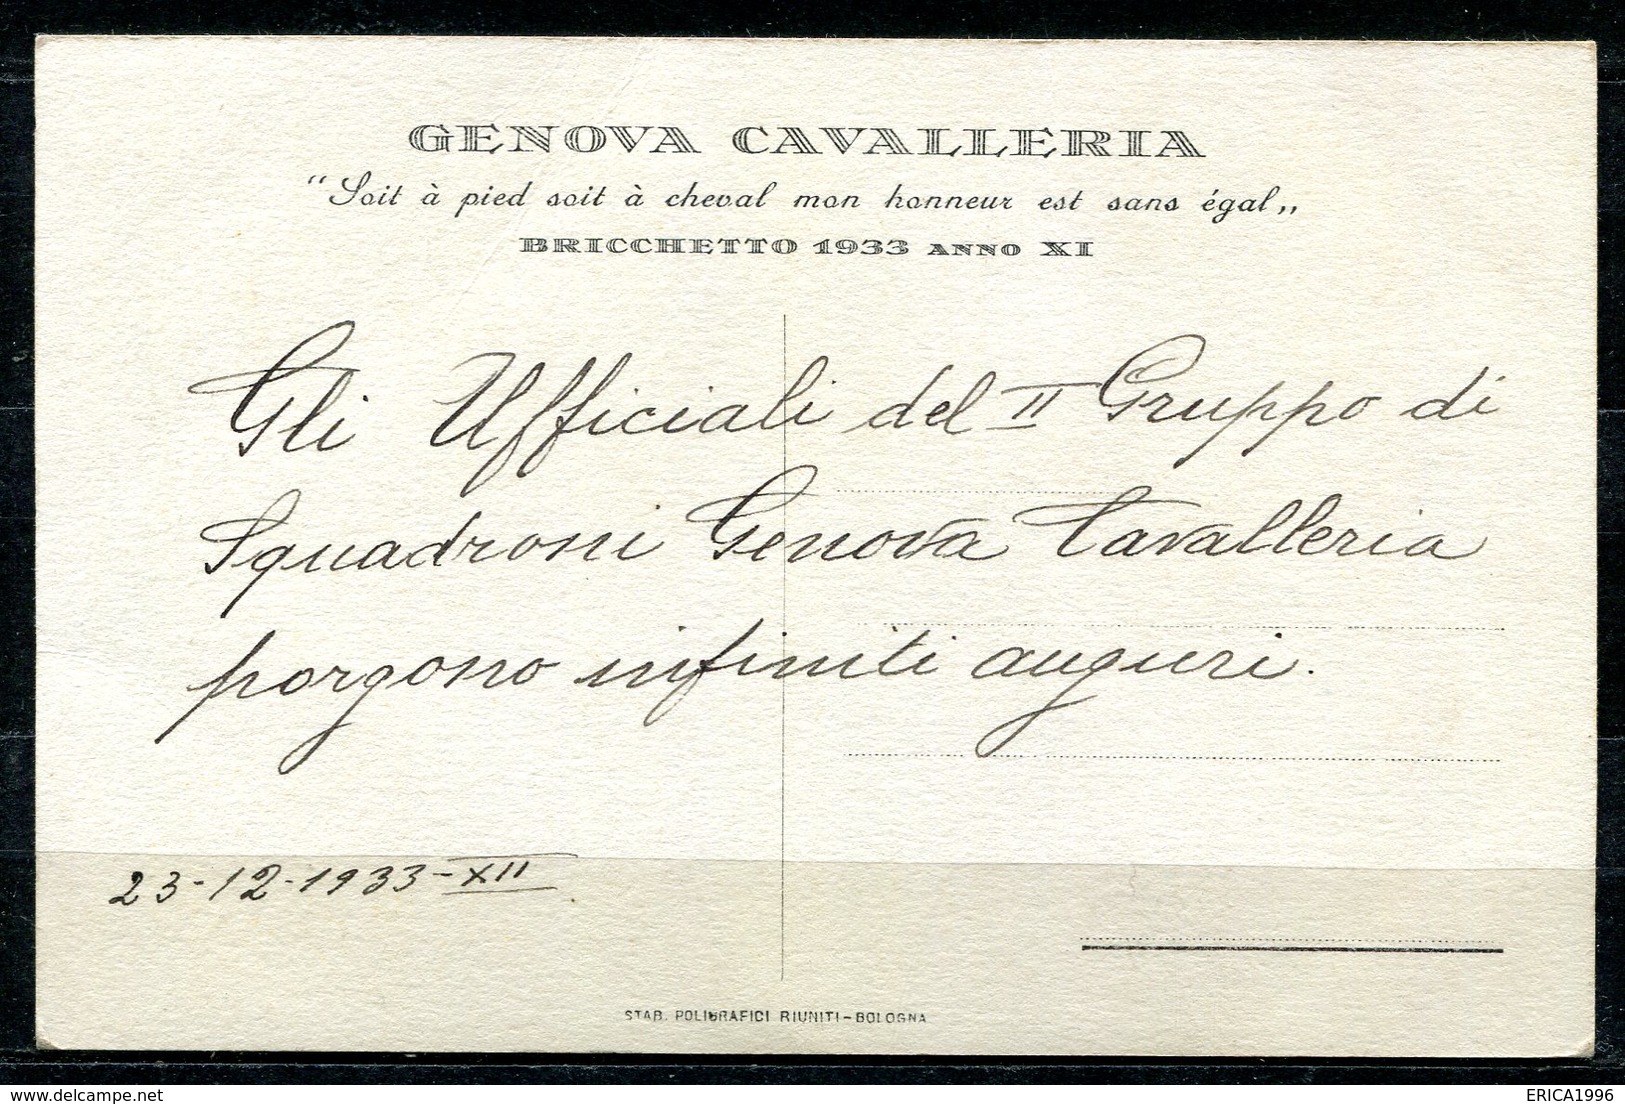 GENOVA CAVALLERIA
"Soit à pied soit à cheval mon honneur est sans égal„
BRICCHETTO 1933 ANNO XI
Gli Ufficiali del II Gruppo di
Squadroni Genova Cavalleria
porgono infiniti auguri.
23-12-1933-XII
STAB. POLIGRAFICI RIUNITI-BOLOGNA
ERICA1996